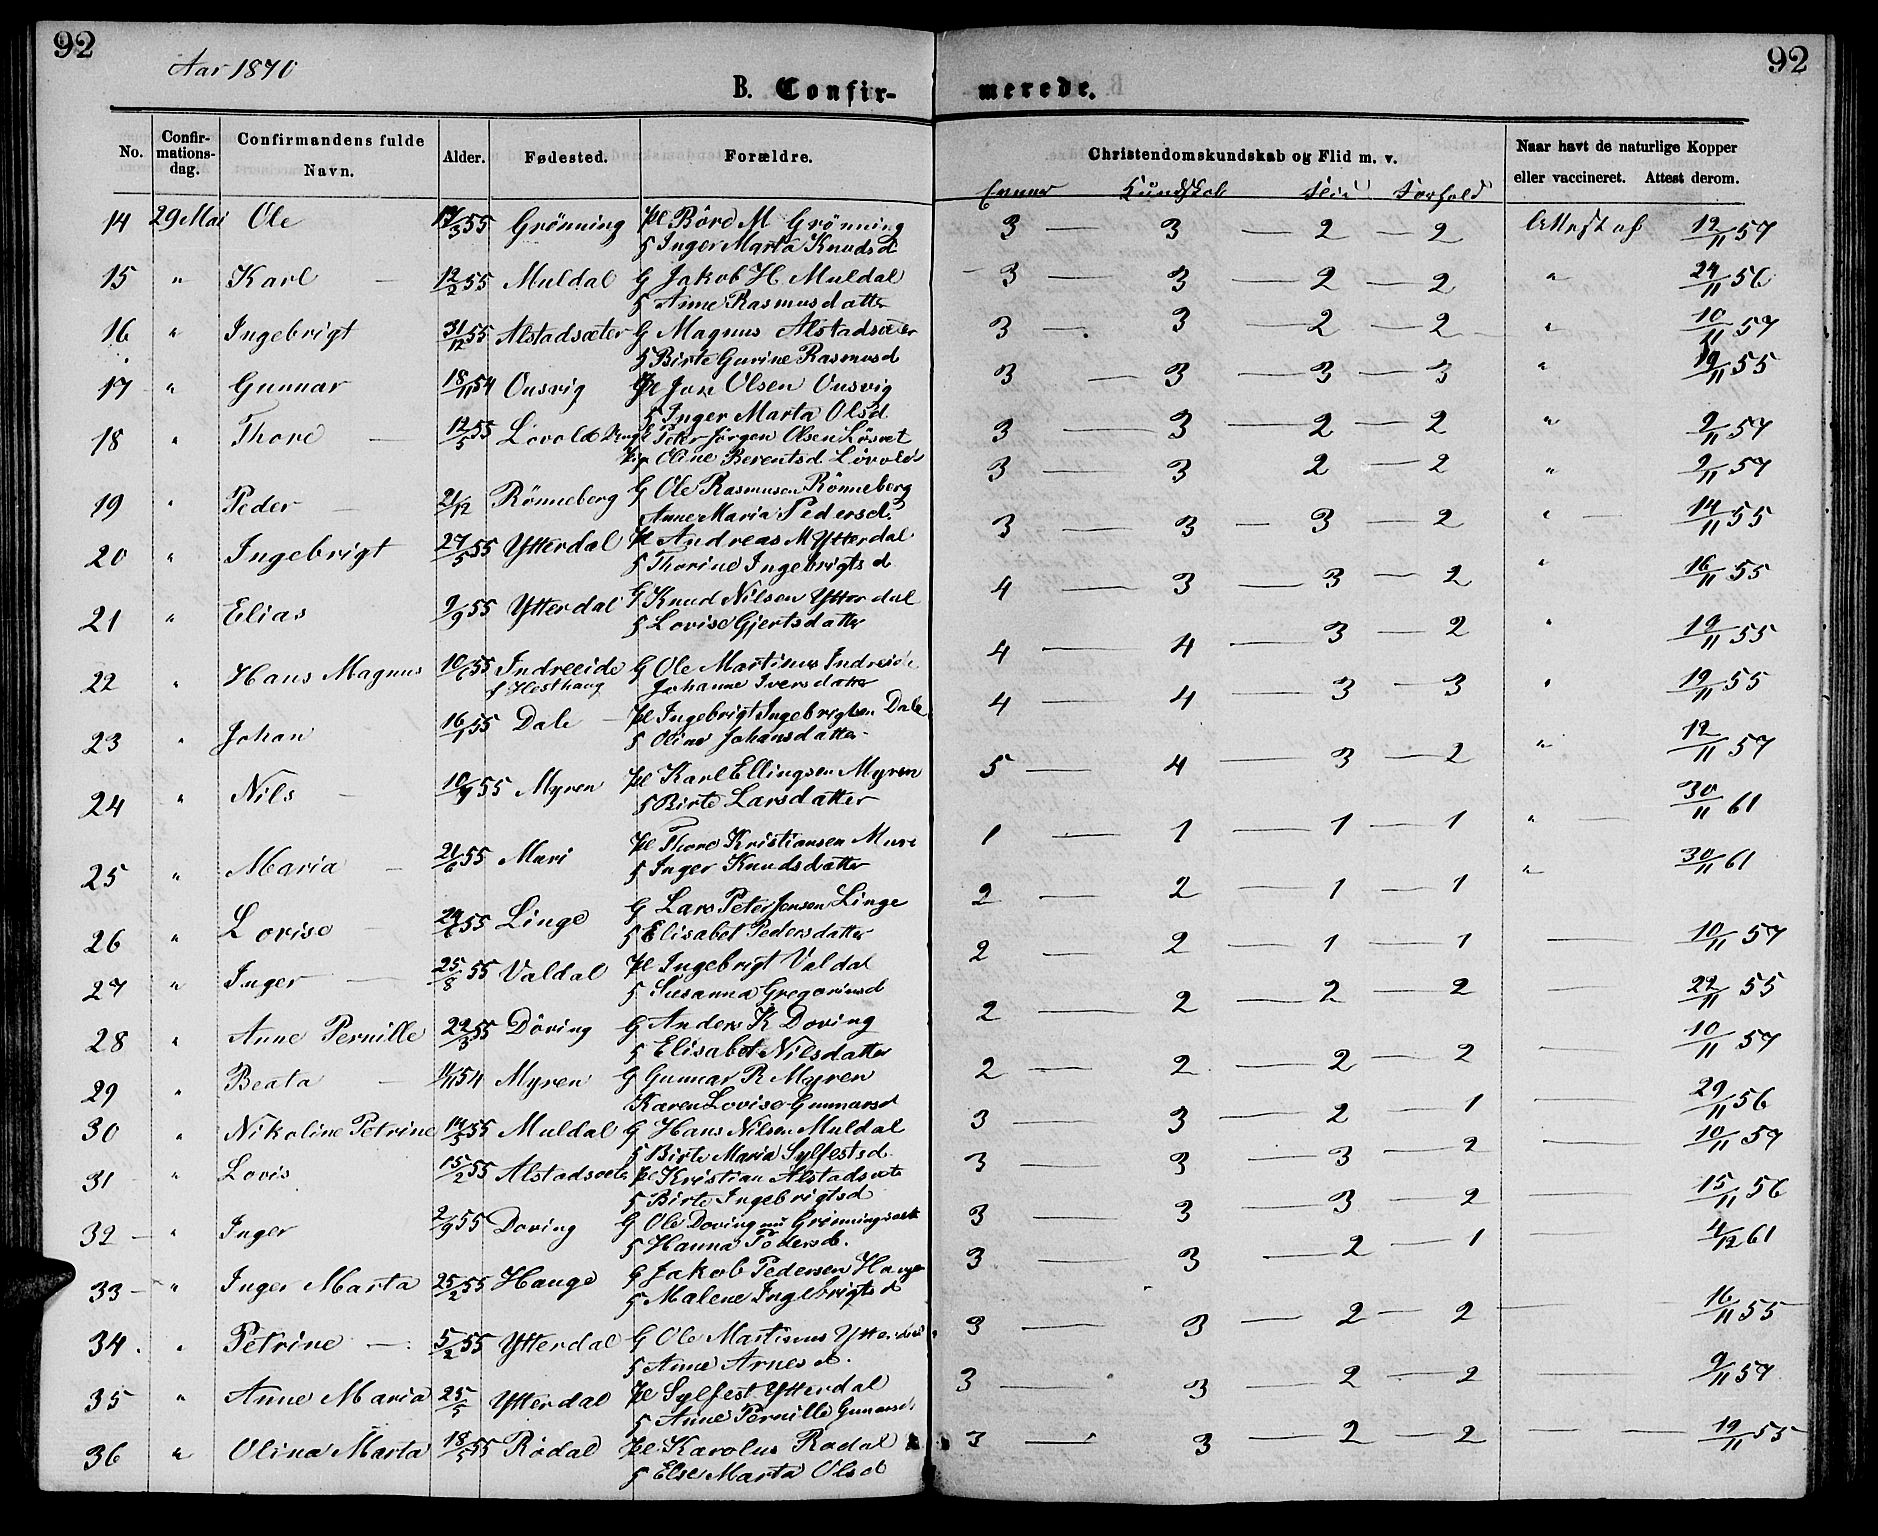 92
Aar 1870
92
B. Confir-
merede.
No. Confir-mations-dag. Confirmandens fulde Navn. Alder. Fødested. Forældre. Christendomskundskab og Flid m. v. Naar havt de naturlige Kopper eller vaccineret. Attest derom.
Evner Kundskab Flid Forhold
14 29 Mai Ole 17/3 55 Grönning Pl Börd M Grönning 3 — 3 — 2 — 2 Attest af 12/11 57
5 Inger Marta Knudsd
15 " Karl — 12/2 55 Muldal G Jakob H. Muldal 3 — 3 — 2 — 2 " 24/11 56
5 Anne Rasmusdatter
16 " Ingebrigt 31/12 55 Alstadsæter G Magnus Alstadsæter 3 — 3 — 2 — 2 " 10/11 57
5 Birte Gurine Rasmusd
17 " Gunnar 18/11 54 Onsvig Pl Jon Olsen Onsvig 3 — 3 — 3 — 3 " 19/11 55
5 Inger Marta Olsd
18 " Thore — 12/5 55 Lovold Ungk Peter Jörgen Olsen Lösvet 3 — 3 — 2 — 2 " 2/11 57
Pig Oline Berentsd Lövold
19 " Peder — 21/12 Rönneberg G Ole Rasmusen Rönneberg 3 — 3 2 — 2 " 2/11 57
Anne Maria Pedersd.
20 " Ingebrigt 27/5 55 Ytterdal Pl Andreas M Ytterdal 3 — 3 — 3 — 2 " — 14/11 55
5 Thorine Ingebrigtsd
21 " Elias 9/9 55 Ytterdal G Knud Nilsen Ytterdal 4 — 3 — 3 — 2 " 16/11 55
5 Lovise Gjertsdatter
22 " Hans Magnus 10/6 55 Indreeide G Ole Martinus Indreide 4 — 4 — 3 — 2 " 19/11 55
f Hesthaug Johanne Iversdatter
23 " Johan 16/1 55 Dale — Pl Ingebrigt Ingebrigtsen Dale 4 — 4 — 3 — 3 " 19/11 55
5 Oline Johansdatter
24 " Nils — 10/9 55 Myren Pl Karl Ellingsen Myren 5 — 4 — 3 — 2 " 12/11 57
5 Birte Larsdatter
25 " Maria — 21/6 55 Muri Pl Thore Kristiansen Mure 1 — 1 — 1 — 1 " — 30/11 61
5 Inger Knudsdatter
26 " Lovise — 24/6 55 Linge G Lars Peter Jonsen Linge 2 — 2 — 1 — 1 " 30/11 61
5 Elisabet Pedersdatter
27 " Inger — 25/8 55 Valdal Pl Ingebrigt Valdal 2 — 2 — 1 — 1 — 10/11 57
5 Susanna Gregoriusd
28 " Anne Pernille 22/3 55 Döving G Anders K Doving 2 — 2 — 2 — 2 — 22/11 55
5 Elisabet Nilsdatter
29 " Beata — 11/11 54 Myren G Gunnar R Myren 2 — 2 — 2 — 2 — 10/11 57
Karen Lovise Gunnarsd
30 " Nikoline Petrine 14/3 55 Muldal G Hans Nilsen Muldal 3 — 3 — 2 — 1 — 29/11 56
5 Birte Maria Sylfestsd.
31 " Lovis 15/2 55 Alstadsæte Pl Kristian Alstadsæte 3 — 3 — 3 — 2 — 10/11 57
5 Birte Ingebrigtsd
32 — " Inger 2/9 55 Doving G Ole Doving nu Grönningsæt 3 — 3 — 3 — 2 — 15/11 56
5 Hanna Pedersd.
33 — " Inger Marta 25/2 55 Hauge G Jakob Pedersen Hauge 3 — 3 — 2 — 1 — 4/12 61
5 Malene Ingebrigtsd
34 . " Petrine — 5/2 55 Ytterdal G Ole Martinus Ytterdal 3 — 3 — 2 — 2 — 16/11 55
5 Anne Arnesd.
35 " Anne Maria 25/5 Ytterdal Pl Sylfest Ytterdal 3 — 3 — 2 — 2 — 9/11 57
5 Anne Pernille Gunnarsd
36 " Olina Marta 18/5 55 Rödal Pl Karolus Rødal 3 — 3 — 2 — 2 — — 19/11 55
5 Else Marta Olsd